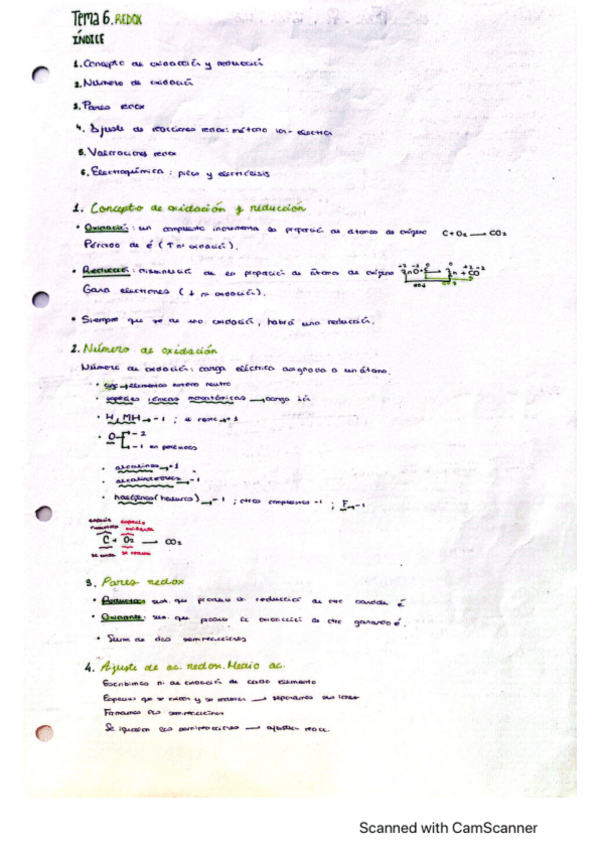 Tema 6. REDOX
ÍNDICE
1. Concepto de oxidación y reducción
2. Número de oxidación
3. Pares redox
4. Ajuste de reacciones redox: método ion-electrón
5. Valoraciones redox
6. Electroquímica: pilas y electrólisis
1. Concepto de oxidación y reducción
• Oxidación: un compuesto incrementa la proporción de átomos de oxígeno C + O2 → CO2
Pérdida de é (↑ nº oxidación).
• Reducción: disminución de la proporción de átomos de oxígeno
Gana electrones (↓ nº oxidación).
• Siempre que se de una oxidación, habrá una reducción.
2. Número de oxidación
Número de oxidación: carga eléctrica asignada a un átomo.
elementos neutro
• especies iónicas monoatómicas → carga ión
• H, MH → -1 ; el resto +1
• O -2
-1 en peróxidos
• alcalinos → +1
• alcalinotérreos →
• halógenos (haluros) → -1 ; otros compuestos +1 ; F → -1
especie especie
oxidante
C + O2 → CO2
se oxida se reduce
3. Pares redox
• Reductor: sust. que produce la reducción de otra é
• Oxidante: sust. que produce la oxidación de otra ganando é.
• Suma de dos semirreacciones
4. Ajuste de ac. redox. Medio ac.
Escribimos n. de oxidación de cada elemento
Especies que se oxidan y se reducen → separamos sus iones
Formamos las semirreacciones
Se igualan las semirreacciones → ajustar reacc.
Scanned with CamScanner